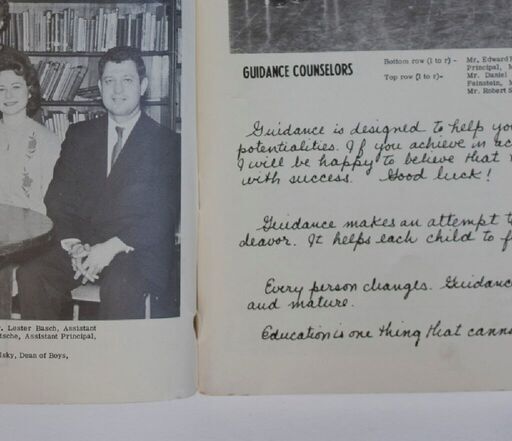 r. Lester Basch, Assistant
tsche, Assistant Principal,
lsky, Dean of Boys,
GUIDANCE COUNSELORS
Bottom row (l to r)- Mr. Edward
Principal, M
Top row (l to r)- Mr. Daniel
Feinstein, M
Mr. Robert S
Guidance is designed to help yo
potentialities. If you achieve in ac
I will be happy to believe that
with success. Good luck!
Guidance makes an attempt t
deavor. It helps each child to f
Every person changes. Guidance
and mature.
Education is one thing that canno